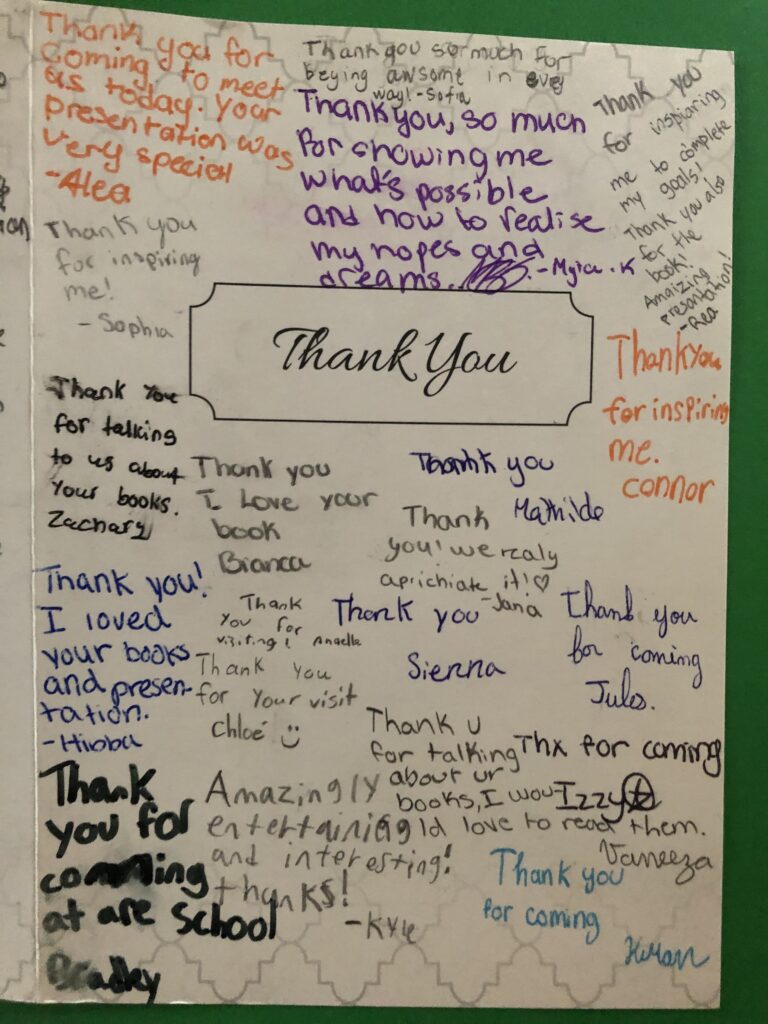 Thank you for
Coming to meet
us today. Your
presentation was
very special
-Alea
Thank you so much for
beying awsome in evey
way! -Sofia
Thank you, so much
for showing me
what's possible
and how to realise
my hopes and
dreams. - Myra . K
Thank you
for inspiaring
me to complete
my goals!
Thank you also
for the
book!
Amaizing
presentation!
-Rea
Thank you
for inspiring
me!
- Sophia
Thank You
Thank you
for inspiring
me.
connor
Thank You
for talking
to us about
Your books.
Zachary
Thank you
I Love your
book
Bianca
Thank you
Mathilde
Thank
you! we realy
aprichiate it!♡
-Jana
Thank you!
I loved
your books
and presen-
tation.
-Hibba
Thank
you for
visiting!
Thank you
Sienna
Thank you
for coming
Jules.
Thank you
for your visit
Chloé
Thank u
for talking
about ur
books, I wou-
ld love to read them.
Vaneeza
Thx for coming
Izzy
Thank
you for
comming
at are school
Bradley
Amazingly
entertaining
and interesting!
thanks!
-Kyle
Thank you
for coming